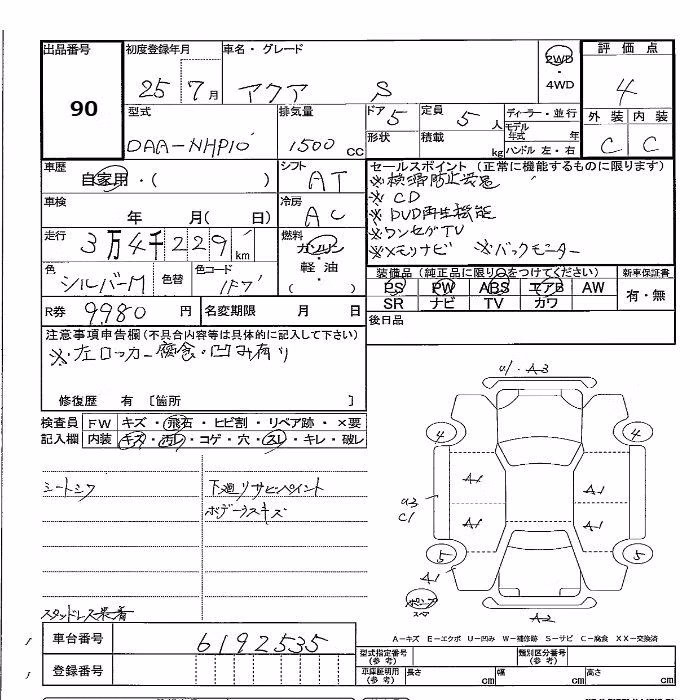 出品番号 初度登録年月 車名・グレード 2WD・4WD 評価点
90 25 7月 アクア S 4
型式 排気量 ドア 5 定員 5人 ディーラー・並行 外装 内装
DAA-NHP10 1500cc 形状 積載 kg モデル年式 年 C C
ハンドル 左・右
車歴 シフト セールスポイント(正常に機能するものに限ります)
自家用・( ) AT ※横滑防止装置
車検 年 月( 日) 冷房 AC ※CD
※DVD再生機能
走行 3万4千229km 燃料 ガソリン・軽油( ) ※ワンセグTV
※メモリナビ ※バックモニター
色 シルバーM 色替 色コード 1F7
装備品(純正品に限り○をつけてください) 新車保証書
PS PW ABS エアB AW 有・無
SR ナビ TV カワ
R券 9980円 名変期限 月 日 後日品
注意事項申告欄(不具合内容等は具体的に記入して下さい)
※左ロッカー腐食・凹み有り
修復歴 有 [箇所 ]
検査員 FW キズ・飛石・ヒビ割・リペア跡・×要
記入欄 内装 キズ・汚レ・コゲ・穴・スレ・キレ・破レ
シートシワ 下廻りサビペイント
ボデーウスキズ
スタッドレス装着
U1・A3
4 4
A1 A1
U3 C1
A1 A1
5 5
A1
A2
A-キズ E-エクボ U-凹み W-補修跡 S-サビ C-腐食 XX-交換済
車台番号 6192535 型式指定番号(参考) 類別区分番号(参考)
登録番号 車庫証明用(参考) 長さ cm 幅 cm 高さ cm